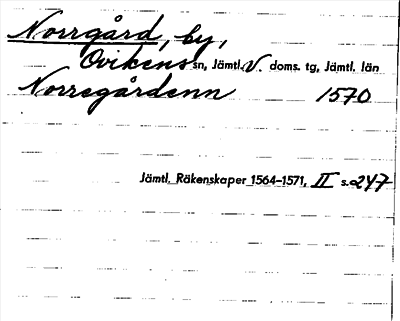 Norrgård, by,
Ovikens sn, Jämtl. V. doms. tg, Jämtl. län
Norregårdenn 1570
Jämtl. Räkenskaper 1564-1571, II s. 247